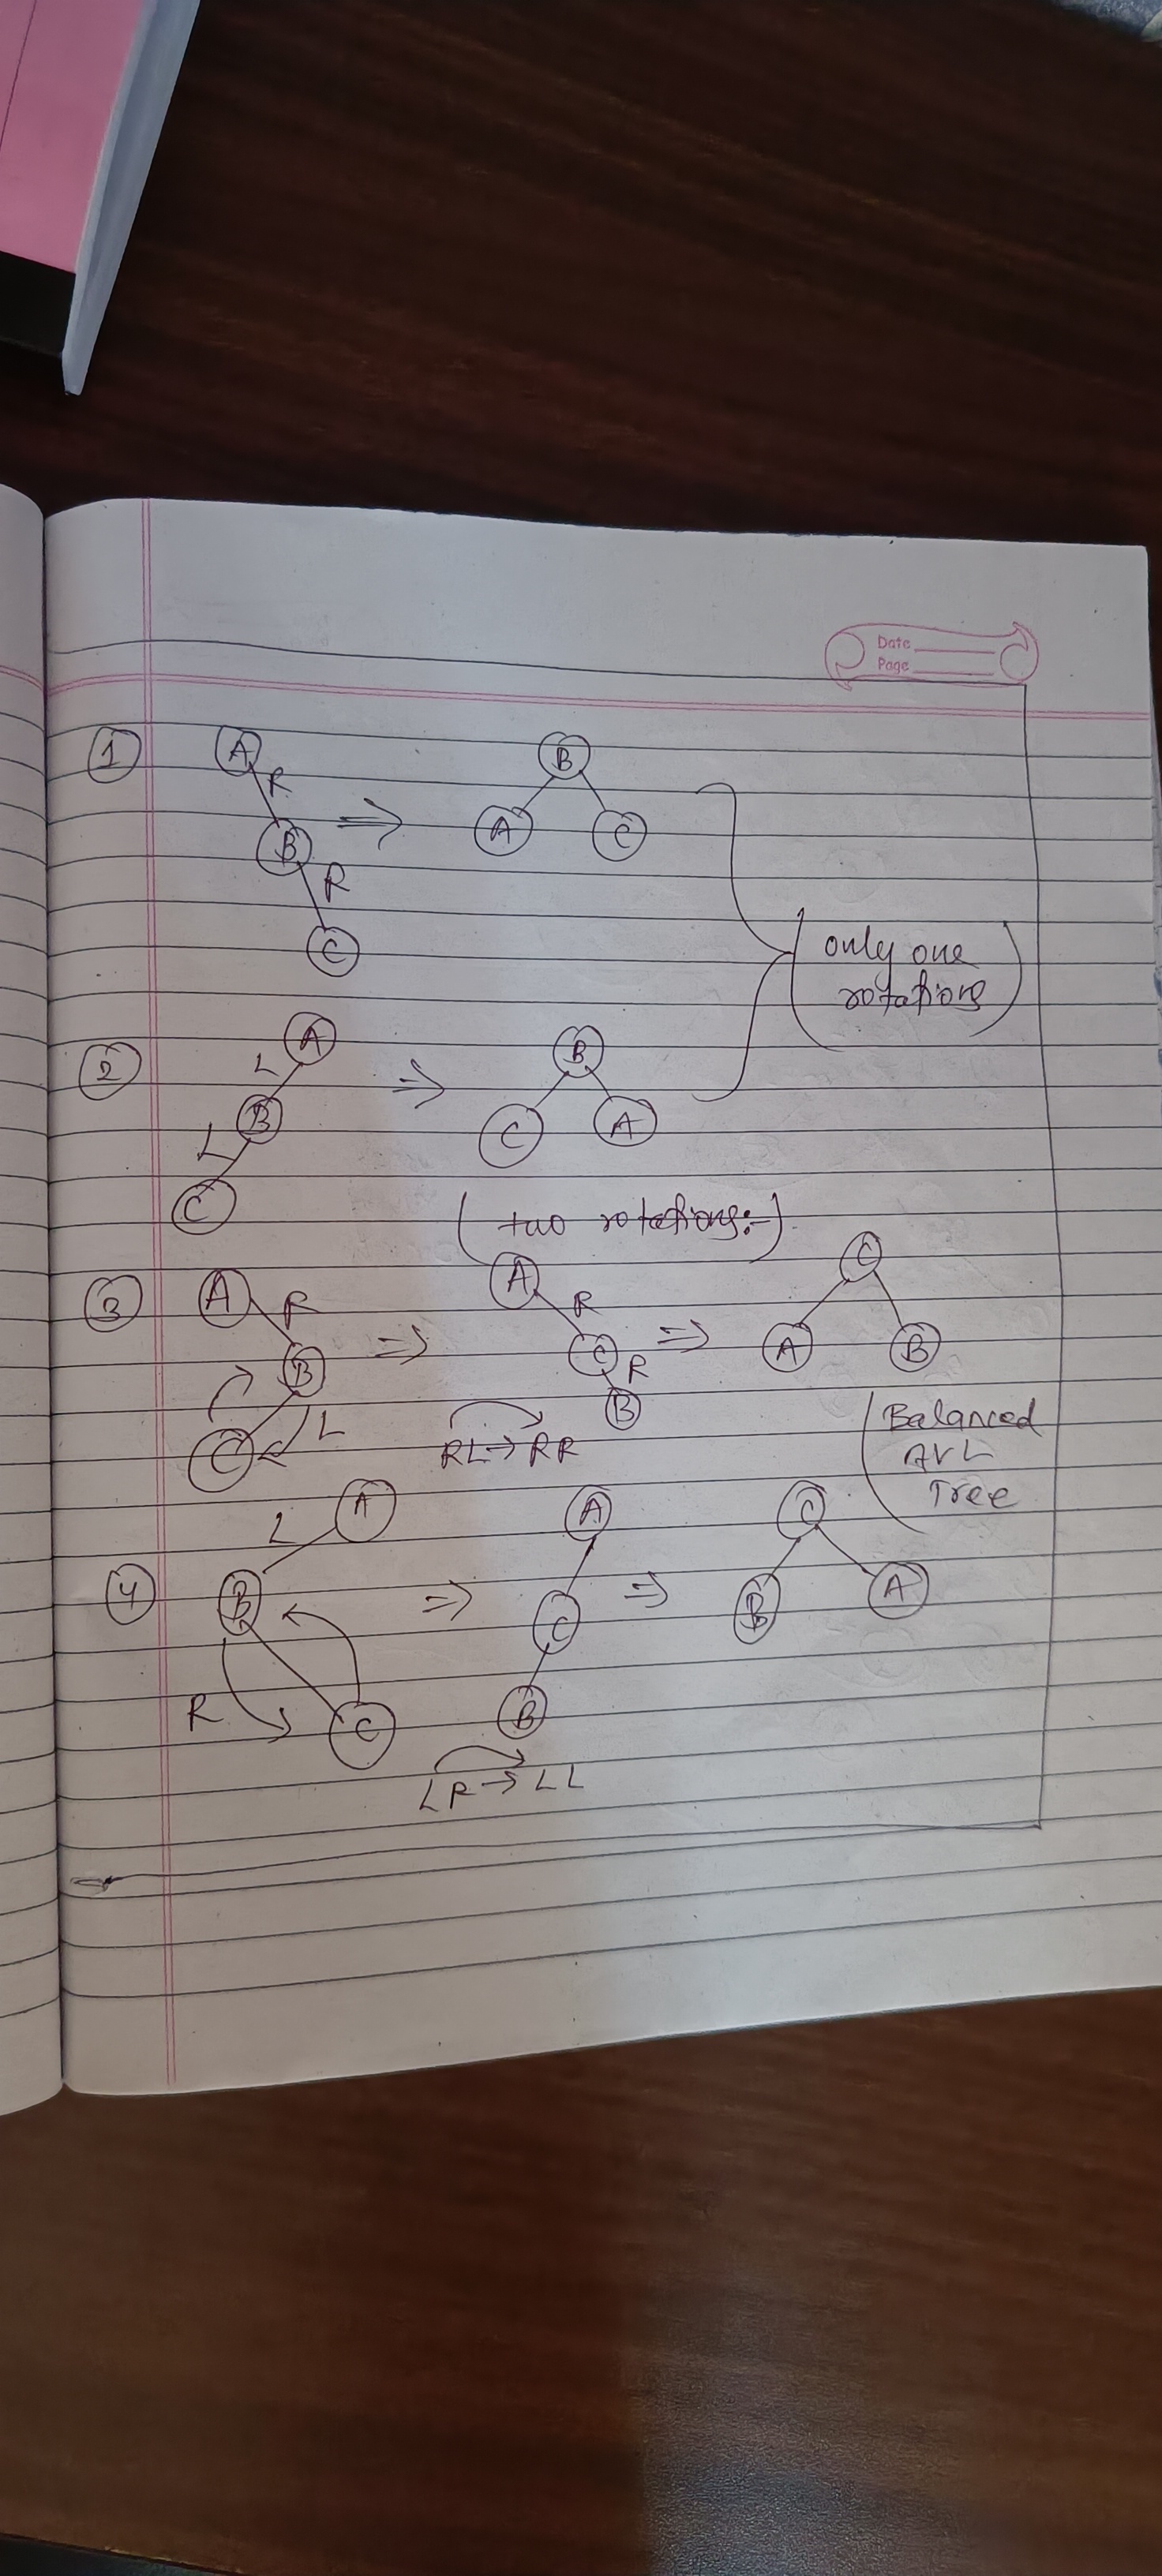 Date
Page
1 A R B R C ⇒ B A C
only one
rotations
2 A L B L C ⇒ B C A
(two rotations:-)
3 A R B L C ⇒ A R C R B ⇒ C A B
RL → RR
Balanced
AVL
Tree
4 A L B R C ⇒ A C B ⇒ C B A
LR → LL